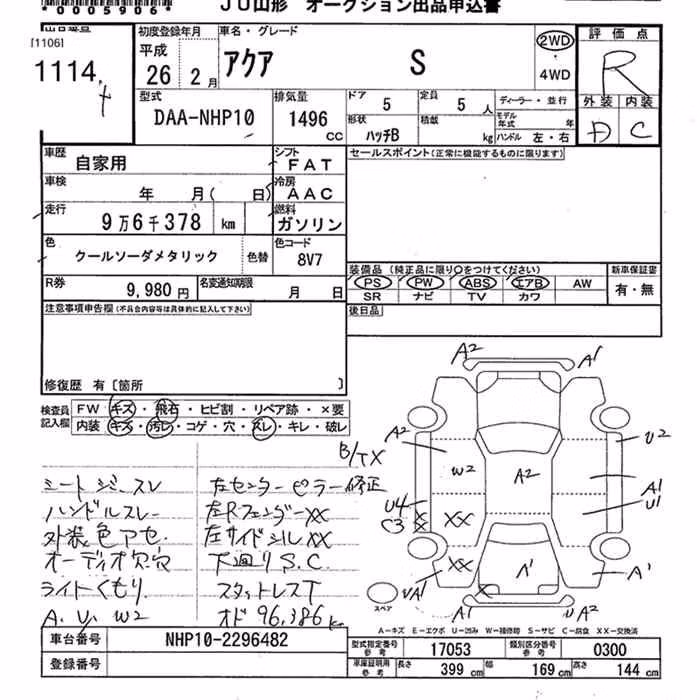 *0005906*
JU山形 オークション出品申込書
[1106]
1114
初度登録年月
平成
26 2月
車名・グレード
アクア S
2WD
4WD
評価点
R
外装 内装
D C
型式
DAA-NHP10
排気量
1496 CC
ドア 5
定員 5 人
形状 ハッチB
積載 kg
ディーラー・並行
モデル年式 年
ハンドル 左・右
車歴
自家用
シフト
FAT
セールスポイント(正常に機能するものに限ります)
車検
年 月( 日)
冷房
AAC
走行
9万6千378 km
燃料
ガソリン
色
クールソーダメタリック
色替
色コード
8V7
装備品(純正品に限り○をつけてください)
PS PW ABS エアB AW
SR ナビ TV カワ
新車保証書
有・無
R券
9,980 円
名変通知期限
月 日
後日品
注意事項申告欄(不具合内容等は具体的に記入して下さい)
修復歴 有〔箇所 〕
検査員記入欄
FW キズ・飛石・ヒビ割・リペア跡・×要
内装 キズ・汚レ・コゲ・穴・スレ・キレ・破レ
B/TX
シートジミ・スレ
ハンドルスレー
外装色アセ
オーディオ欠.穴
ライトくもり
A. U. W2
左センターピラー修正
左Rフェンダー××
左サイドシル××
下廻りS.C.
スタットレスT
オド 96,386km
A2 A1
A2 U2
W2 A2
A1
U1
U4
C3
××
××
UA1
A1
A1
A1 UA2
スペア
A-キズ E-エクボ U-凹み W-補修跡 S-サビ C-腐食 ××-交換済
車台番号
NHP10-2296482
登録番号
型式指定番号 参考
17053
類別区分番号 参考
0300
車庫証明用 参考
長さ 399 cm
幅 169 cm
高さ 144 cm